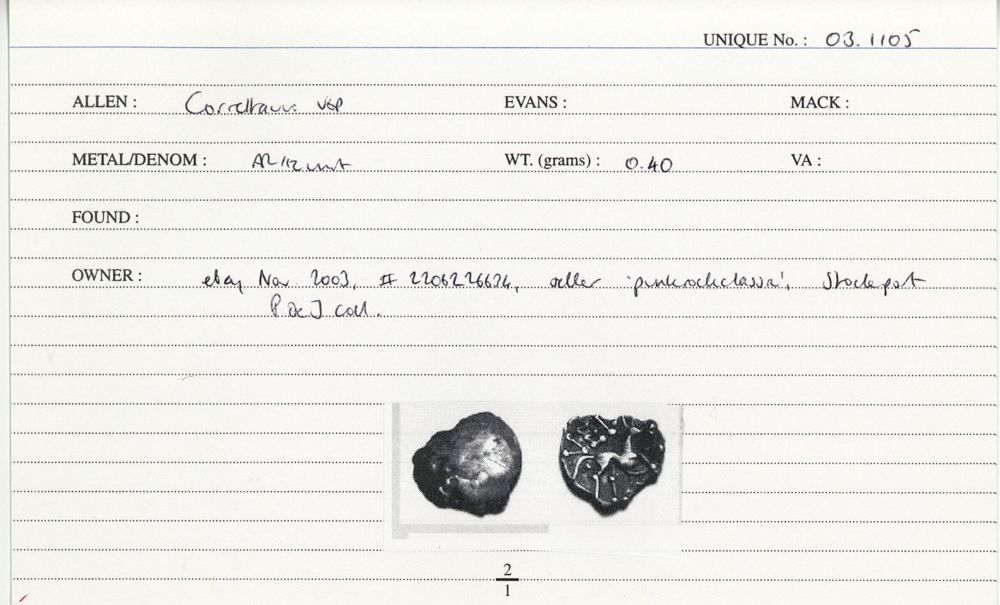 UNIQUE No. : 03.1105
ALLEN : VEP EVANS : MACK :
METAL/DENOM : AR 1/2 unit WT. (grams) : 0.40 VA :
FOUND :
OWNER : ebay Nov 2003, # 2206226624, seller 'punkrockclassix', Stockport
P de J coll.
2
1